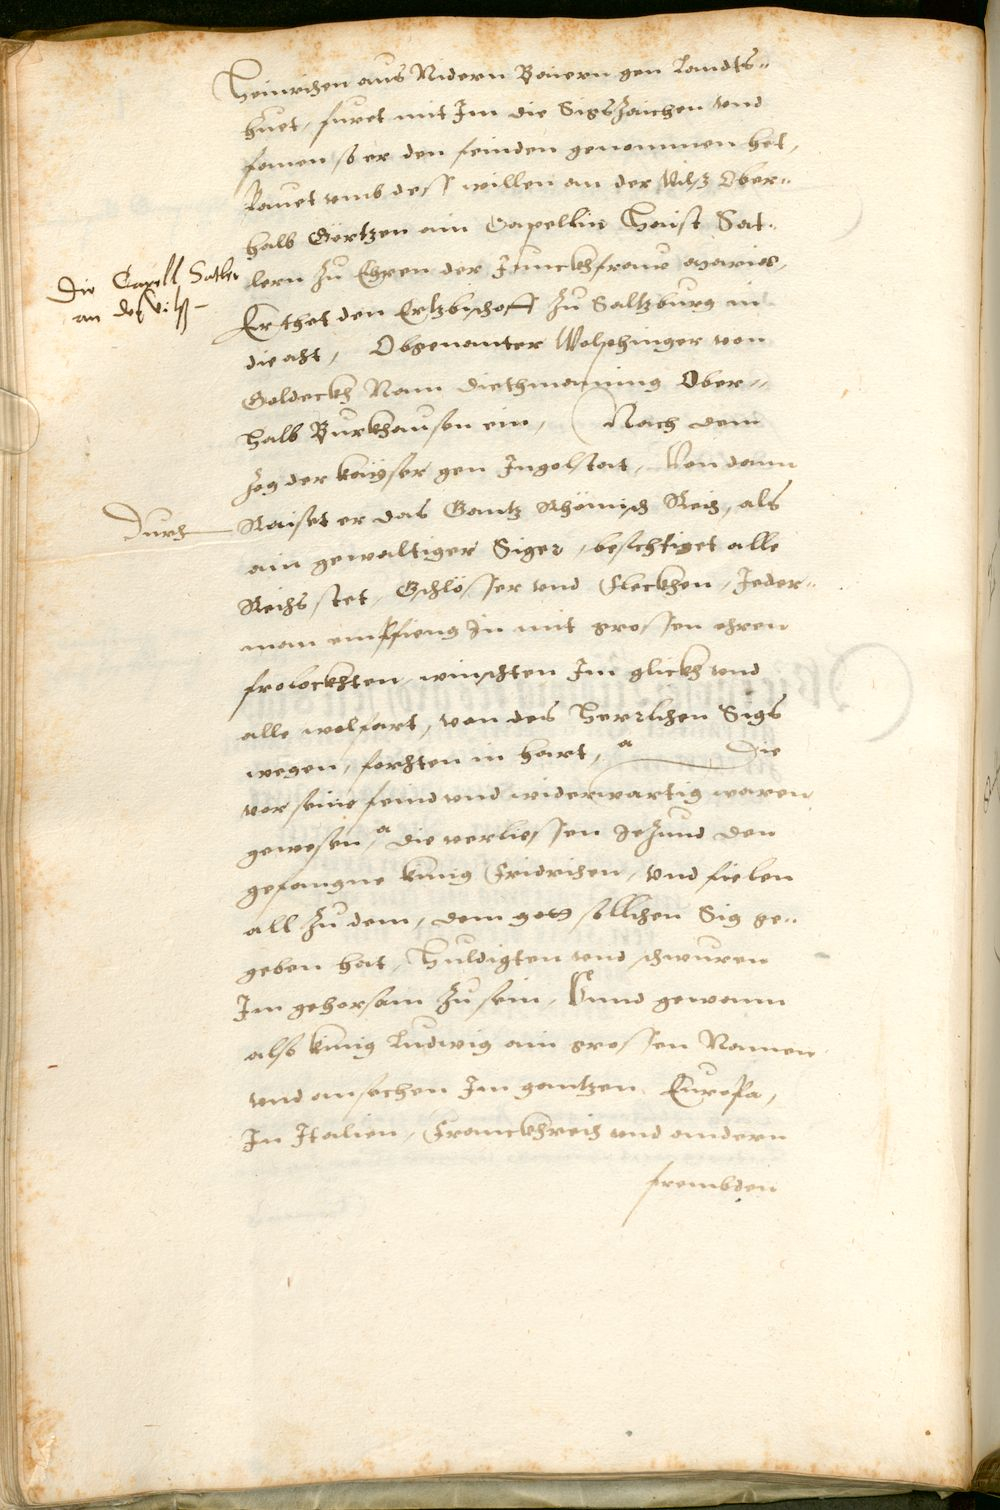 Heinrichen aus Nidern Baiern gen Landts„
huet, furet mit Im die Sigszaichen vnd
fanen so er den feinden genommen het,
Pauet vmb dess willen an der Vilsz Ober„
halb Gertzen ain Capellin Haist Sat„
lern zu Ehren der Junckhfraw Maries,
Die Capell Satler
an der Vilß
Er thet den Ertzbischoff zu Saltzburg in
die aht, Obgenanter Wolfhinger von
Goldeckh Nam Diethmaning Ober„
halb Burkhausen ein, Nach dem
zog der kayser gen Ingolstat, Von dann
Durch
Raiset er das Gantz Rhömisch Reich, als
ain gewaltiger Siger, besichtiget alle
Reichs stet, Gschlösser vnd Fleckhen, Jeder„
man empffieng In mit grossen ehren
frolockhten, winschten Im glickh vnd
alle wolfart, von des Herrlichen Sigs
wegen, forchten in hart, a Die
vor seine feind vnd widerwartig waren
gewesen, a die verliessen Jezund den
gefangne kunig Fridrichen, vnd fielen
all zu dem, dem gott sollichen Sig ge„
geben hat, Huldigten vnd schwuren
Im gehorsam zu sein, Vnnd gewann
also kunig Ludwig ain grossen Namen
vnd ansechen Im gantzen Europa,
In Italien, Franckhreich vnd andern
frembden